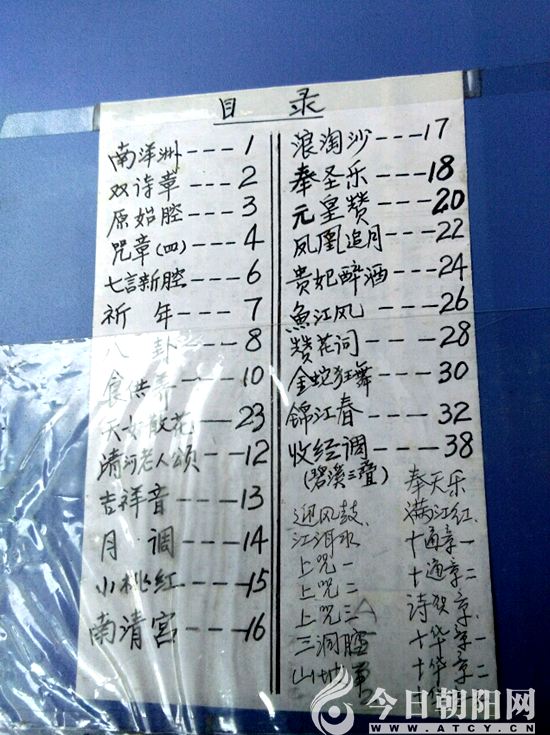 目 录
南洋洲---1
双诗章---2
原始腔---3
咒章(四)---4
七言新腔---6
祈 年---7
八 卦---8
食供养---10
天女散花---23
清河老人颂---12
吉祥音---13
月 调---14
小桃红---15
南清宫---16
浪淘沙---17
奉圣乐---18
元皇赞---20
凤凰追月---22
贵妃醉酒---24
魚江风---26
赞花词---28
金蛇狂舞---30
锦江春---32
收经调---38
(碧溪三叠)
迎风鼓
江洱水
上咒一
上咒二
上咒三
三洞腔
山坡
奉天乐
满江红
十通章一
十通章二
诗贺章
十华章一
十华章二
今日朝阳网
WWW.ATCY.CN